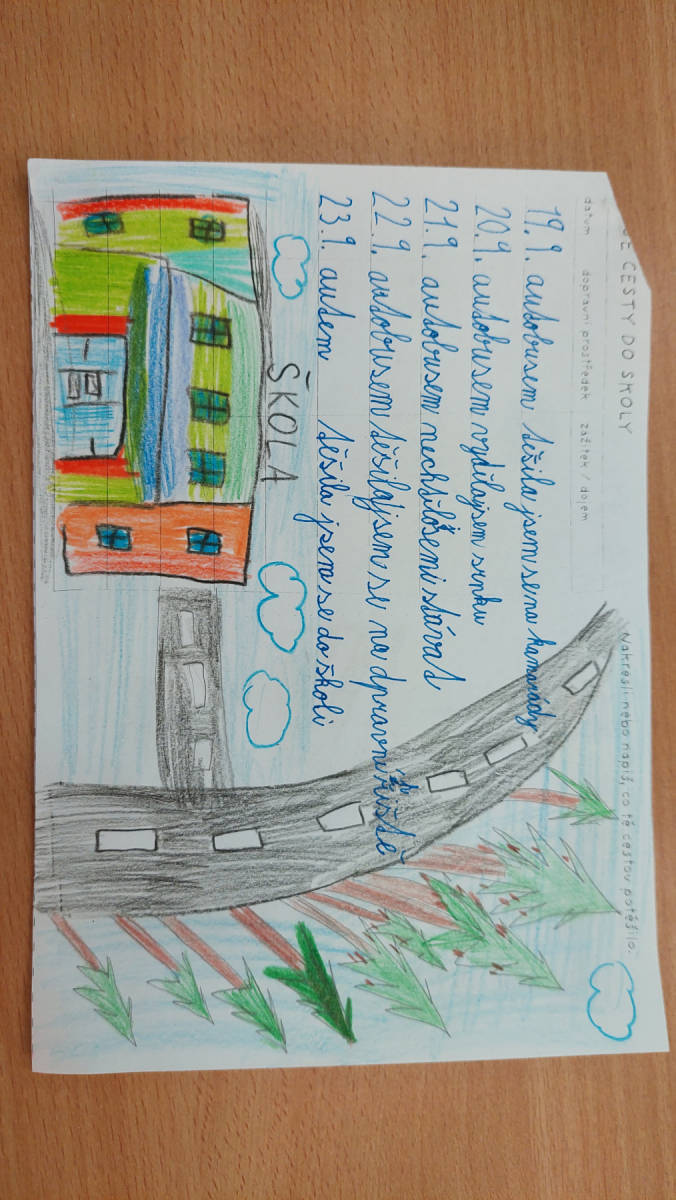 JE CESTY DO ŠKOLY
datum dopravní prostředek zážitek / dojem
Nakresli nebo napiš, co tě cestou potěšilo.
19.9. autobusem těšila jsem se na kamarády
20.9. autobusem vzděla jsem srnku
21.9. autobusem nechtělo se mi stávat
22.9. autobusem těšila jsem se na dpravní řiště
23.9. autem těšila jsem se do školi
ŠKOLA